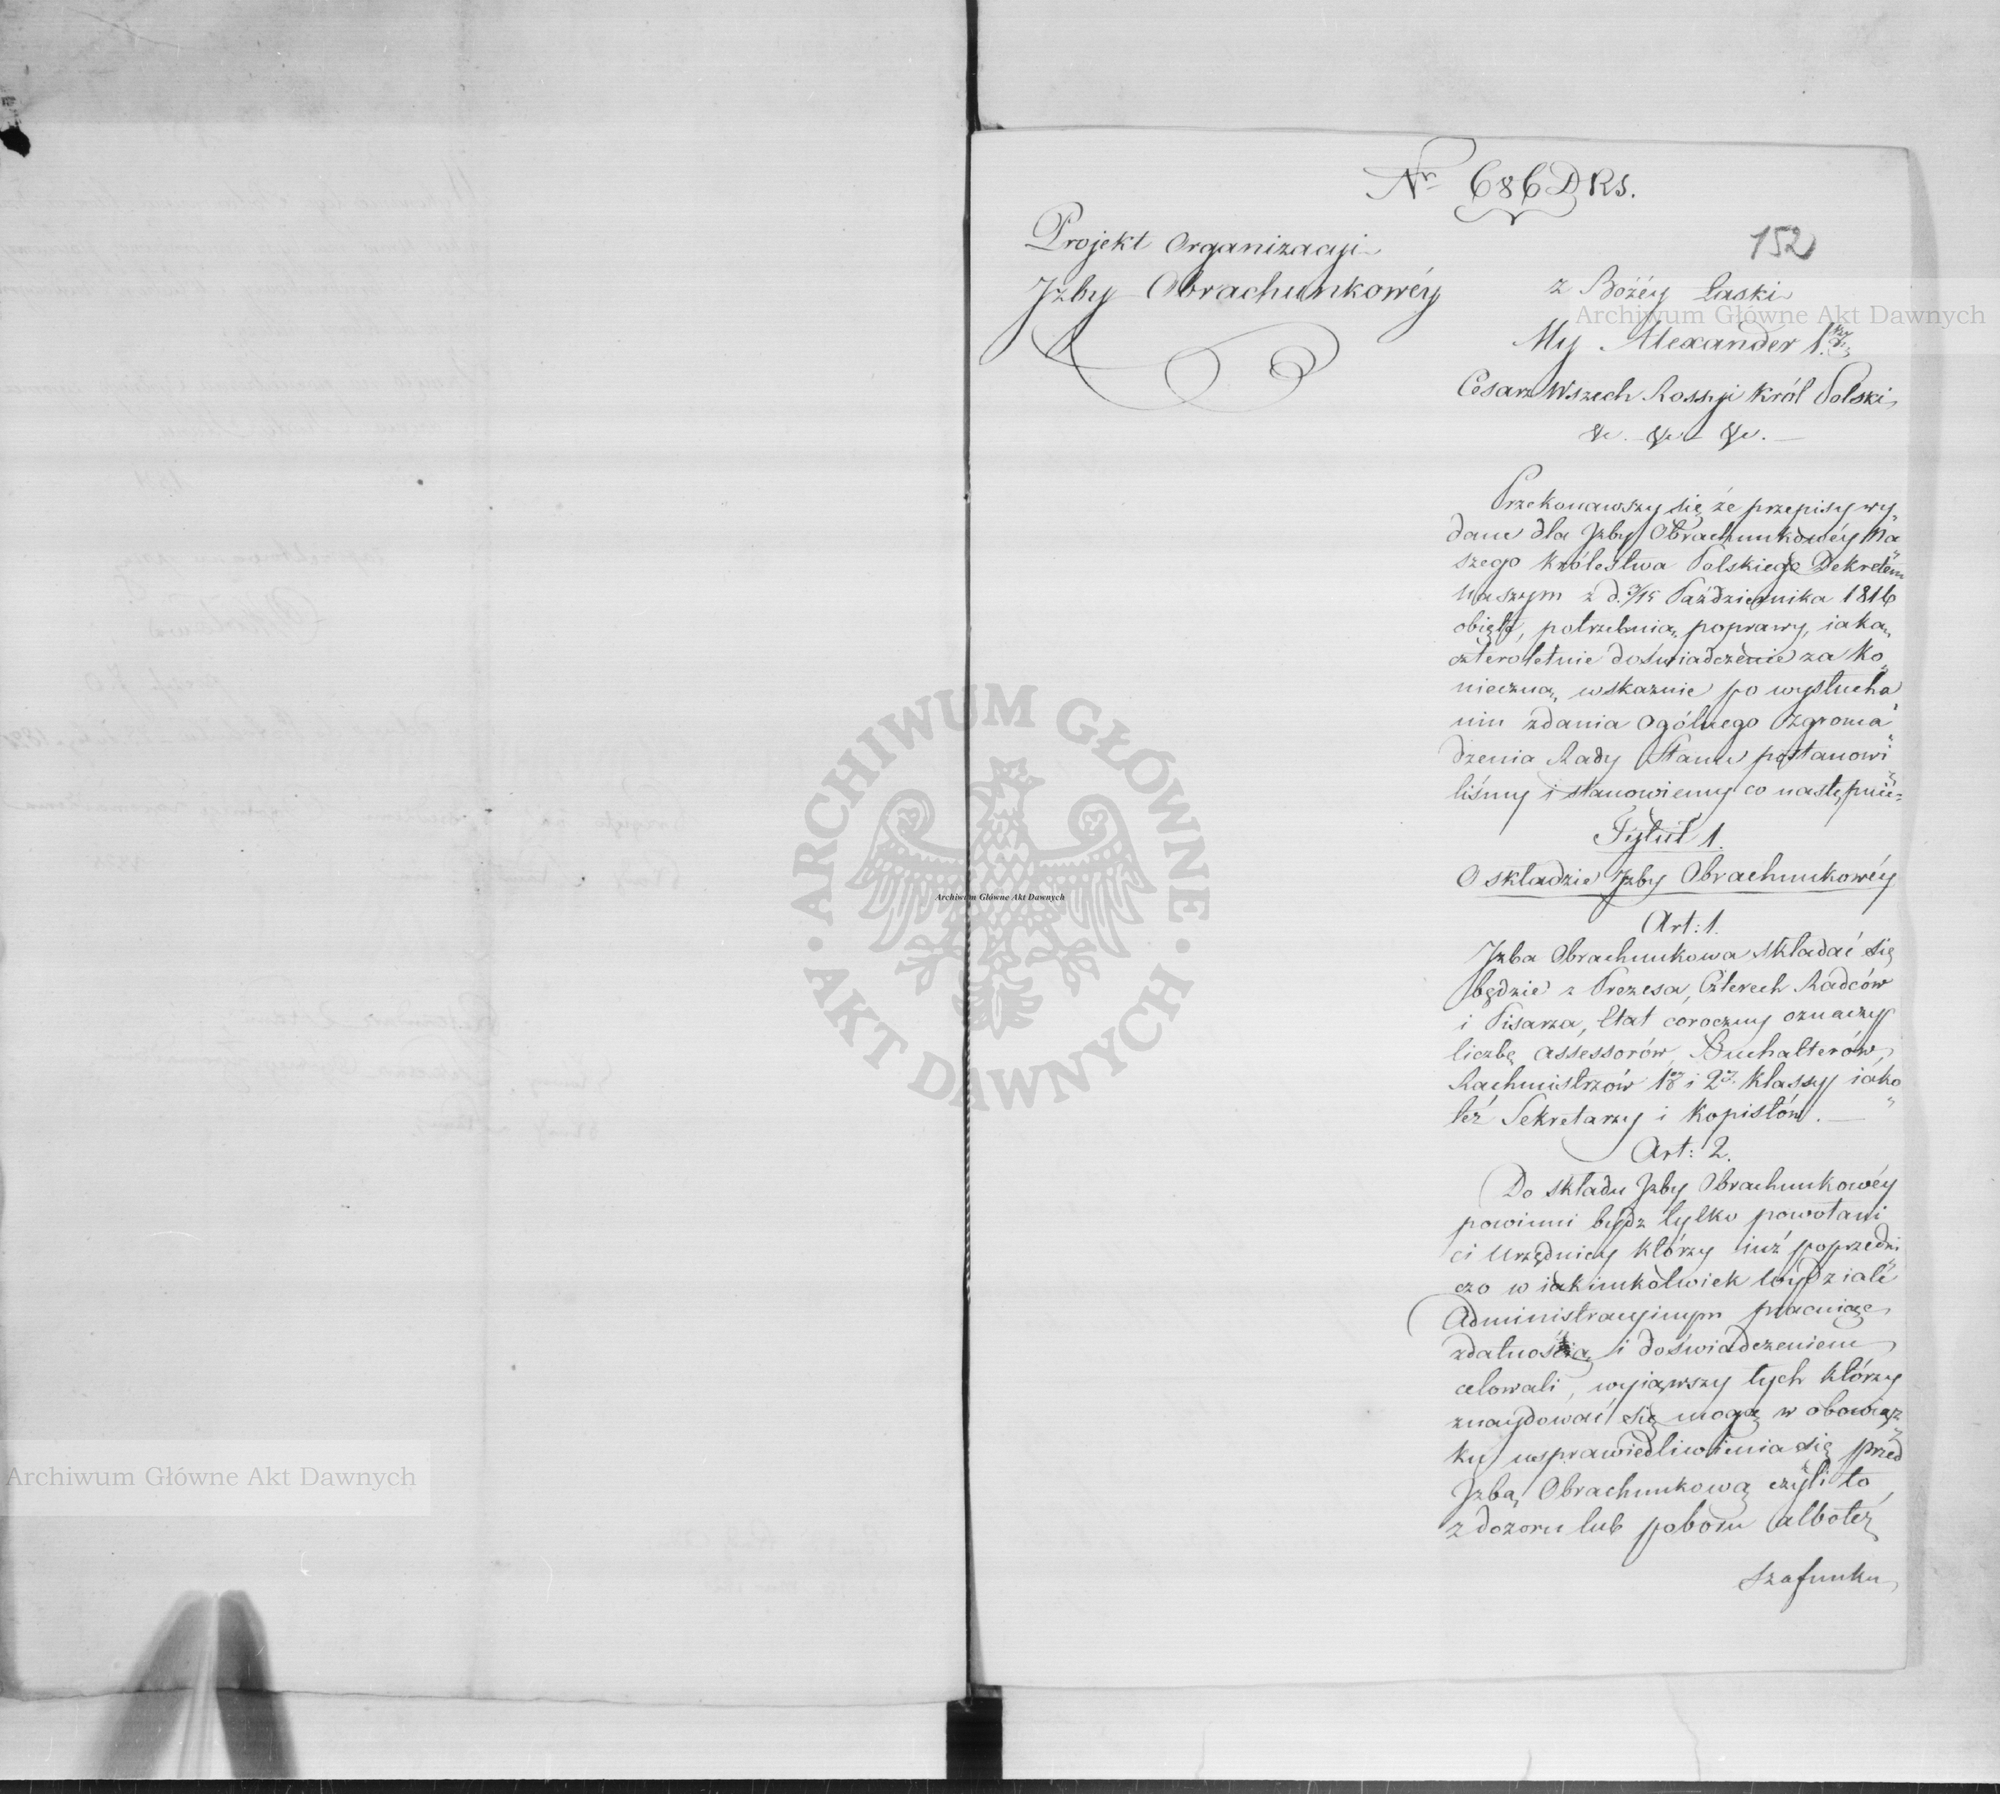 Nr 686 DRS.
152
Projekt Organizacyi
Jzby Obrachunkowéy
z Bożéy łaski
My Alexander 1.szy
Cesarz Wszech Rossyi Król Polski
&c. &c. &c.
Przekonawszy się że przepisy wy„
dane dla Jzby Obrachunkowéy Na„
szego Królestwa Polskiego Dekretem
Naszym z d. 3/15 Października 1816
obięte, potrzebuią poprawy, iaką
czteroletnie doświadczenie za ko„
nieczną wskazuie po wysłucha„
niu zdania Ogólnego Zgroma„
dzenia Rady Stanu postanowi„
liśmy i stanowiemy co następuie=
Tytuł 1.
O składzie Jzby Obrachunkowéy
Art: 1.
Jzba Obrachunkowa składać się
będzie z Prezesa, Czterech Radców
i Pisarza, Etat coroczny oznaczy
liczbę Assessorów, Buchalterów,
Rachmistrzów 1éy i 2éy klassy iako„
też Sekretarzy i Kopistów.—
Art: 2.
Do składu Jzby Obrachunkowéy
powinni bydz tylko powołani
ci Urzędnicy którzy iuż poprzedni„
czo w iakimkolwiek wydziale
Administracyinym pracuiąc
zdatnością i doświadczeniem
celowali, wyiąwszy tych którzy
znaydować się mogą w obowiąz„
ku usprawiedliwienia się przed
Jzbą Obrachunkową czyli to
z dozoru lub poboru alboteż
szafunku
Archiwum Główne Akt Dawnych
Archiwum Główne Akt Dawnych
Archiwum Główne Akt Dawnych
ARCHIWUM GŁÓWNE
AKT DAWNYCH